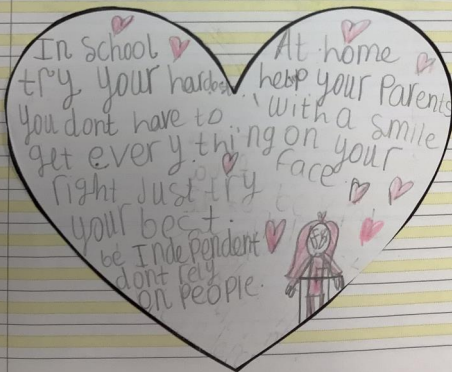 In school
try your hardest.
you dont have to
get every thing
right Just try
your best.
be Independent
dont rely
on people.
At home
help your Parents
with a smile
on your
face